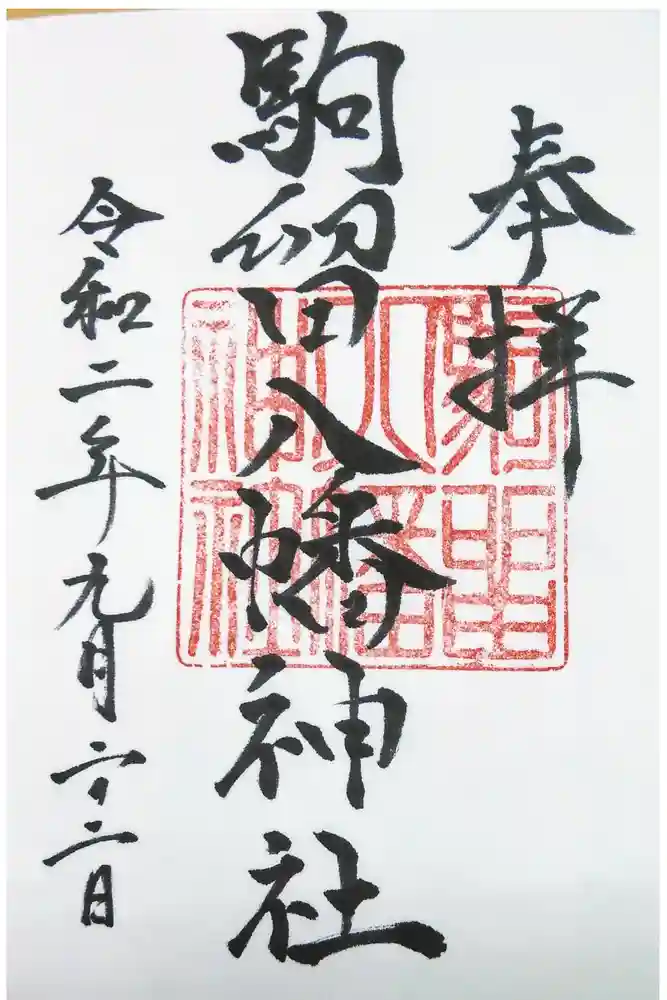 奉拝
駒留八幡神社
令和二年元月二日
駒留
八幡
神社